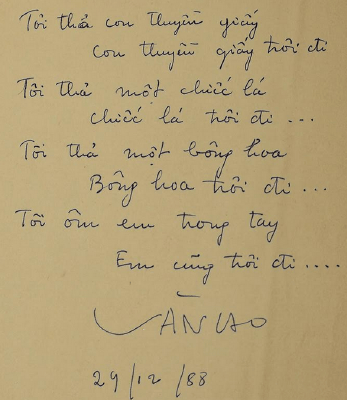 Tôi thả con thuyền giấy
Con thuyền giấy trôi đi
Tôi thả một chiếc lá
chiếc lá trôi đi ...
Tôi thả một bông hoa
Bông hoa trôi đi ...
Tôi ôm em trong tay
Em cũng trôi đi ....
VĂN CAO
29/12/88